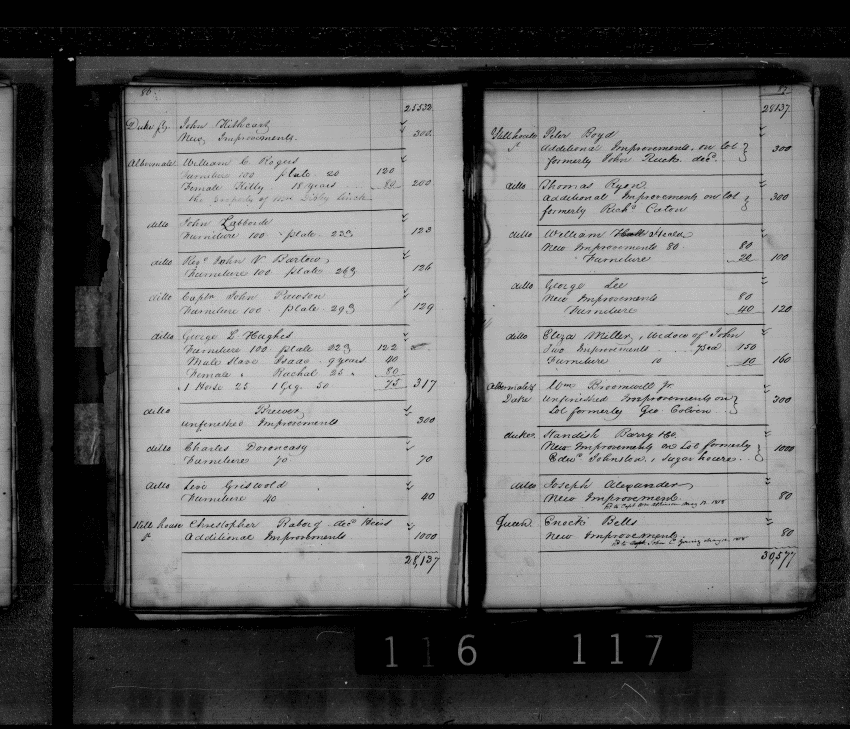 86.
25532
Duke St John Kithcart
New Improvements. 300
Albermale William C. Rogers
Furniture 100 plate 20 120
Female Kitty 18 years 80 200
the property of
ditto John Labborde
Furniture 100 - plate 23 123
ditto Revd John V Bartow,
Furniture 100 plate 26 126
ditto Captn John Pawson
Furniture 100 - plate 29 129
ditto George L Hughes
Furniture 100 plate 22 122
Male slave Isaac 9 years 40
Female " Rachal 25 " 80
1 Horse 25 1 Gig 50 75 317
ditto Brewer
unfinished Improvements 300
ditto Charles
Furniture 70 70
ditto Levi Griswold
Furniture 40 40
Still house Christopher Raborg decd Heirs
St Additional Improvements 1000
28,137
87.
28137
Still house Peter Boyd
St Additional Improvements. on Lot
formerly John decd 300
ditto Thomas Ryan
Additional Improvements on Lot
formerly Richd Caton 300
ditto William Heald
New Improvements 80 80
Furniture 20 100
ditto George Lee
New Improvements 80
Furniture 40 120
ditto Eliza Miller, Widow of John
Two Improvements 75 ea 150
Furniture 10 10 160
Albermale & Wm Bromwell Jr
Duke unfinished Improvements on
Lot formerly Geo Colvin 300
duke Standish Barry
New Improvements on Lot formerly
Edwd Johnston, Sugar house 1000
ditto Joseph Alexander
New Improvement 80
Queen Enock Betts
New Improvements 80
30,577
116 117